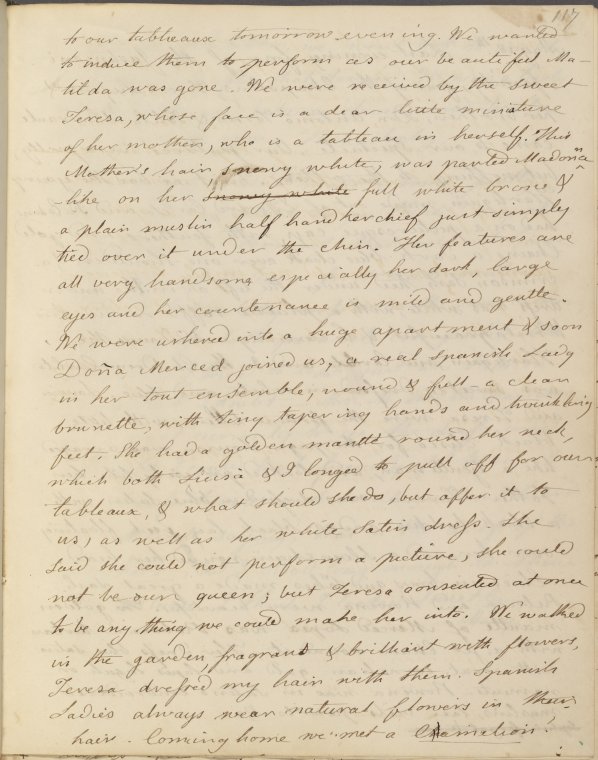 117
to our tableaux tomorrow evening. We wanted
to induce them to perform as our beautiful Ma-
tilda was gone. We were received by the sweet
Teresa, whose face is a dear little miniature
of her mother, who is a tableau in herself. This
Mother's hair, snowy white, was parted Madonna
-like on her snowy white full white brows &
a plain muslin half handkerchief just simply
tied over it under the chin. Her features are
all very handsome especially her dark, large
eyes and her countenance is mild and gentle.
We were ushered into a huge apartment & soon
Doña Merced joined us, a real Spanish Lady
in her tout ensemble, round & full - a clear
brunette, with tiny tapering hands and twinkling
feet. She had a golden mantle round her neck,
which both Luisa & I longed to pull off for our
tableaux, & what should she do, but offer it to
us, as well as her white satin dress. She
said she could not perform a picture, she could
not be our queen; but Teresa consented at once
to be any thing we could make her into. We walked
in the garden, fragrant & brilliant with flowers,
Teresa dressed my hair with them. Spanish
Ladies always wear natural flowers in their
hair. Coming home we met a Chamelion!